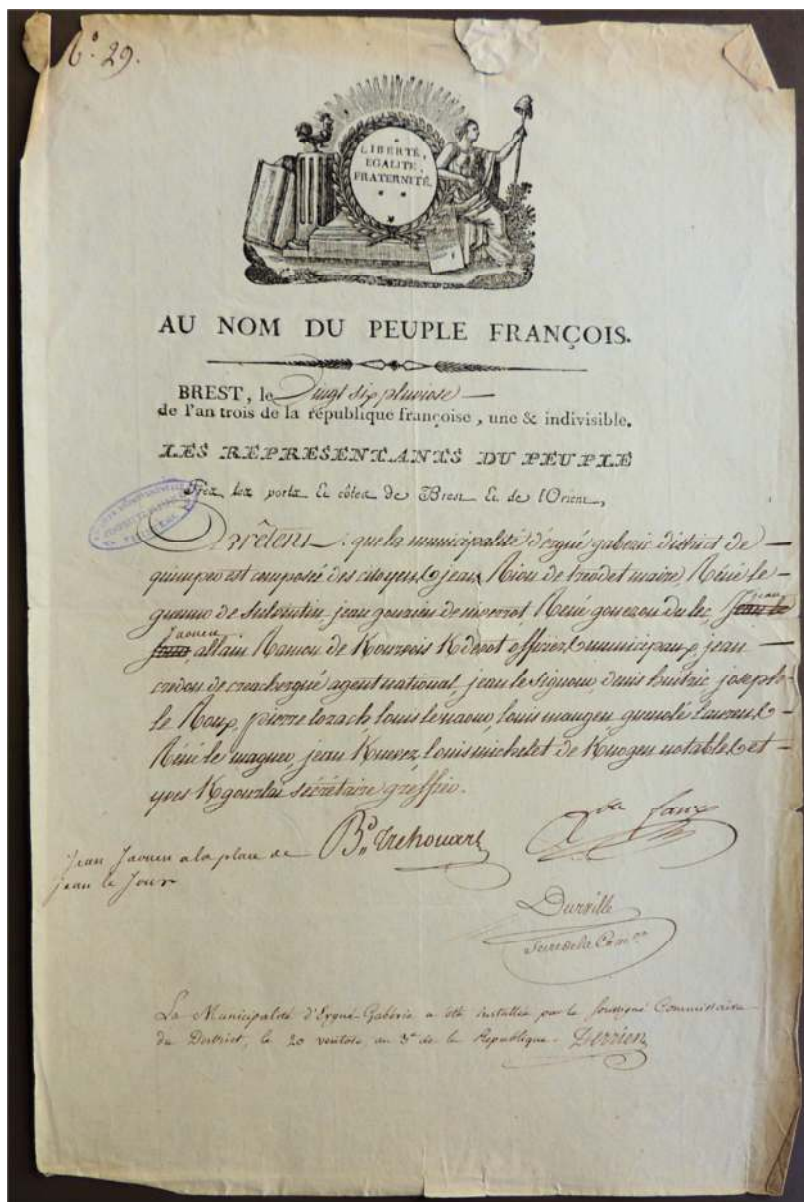 N.º 29.
LIBERTÉ,
EGALITÉ,
FRATERNITÉ.
AU NOM DU PEUPLE FRANÇOIS.
BREST, le Vingt six pluviose
de l'an trois de la république françoise, une & indivisible.
LES REPRÉSENTANTS DU PEUPLE
Près les ports & côtes de Brest & de l'Orient,
Arrêtent que la municipalité d'ergué gaberic district de
quimper est composée des citoyens jean Riou de treodet maire, Réné le
guenno de Sulvintin, jean gouzien de niverrot, Réné gouezou du lec, jean le
jour jean jaouen, allain Ramou de officiers municipaux, jean
credou de creachergué agent national, jean le Signour, denis huitric, joseph
le Roux, pierre lozach, louis le naour, louis mauguen, guenolé laurens
Réné le maguer, jean Knevez, louis michelet de Knogen notables et
yves Kgourlai sécrétaire greffier.
jean Jaouen a la place de
jean le Jour
Bd. Trehouart
faure
Durville
Secre de la Comon
La Municipalité d'Ergué-Gabéric a été installée par le soussigné Commissaire
du District, le 20 ventôse, an 3e de la République. Derrien